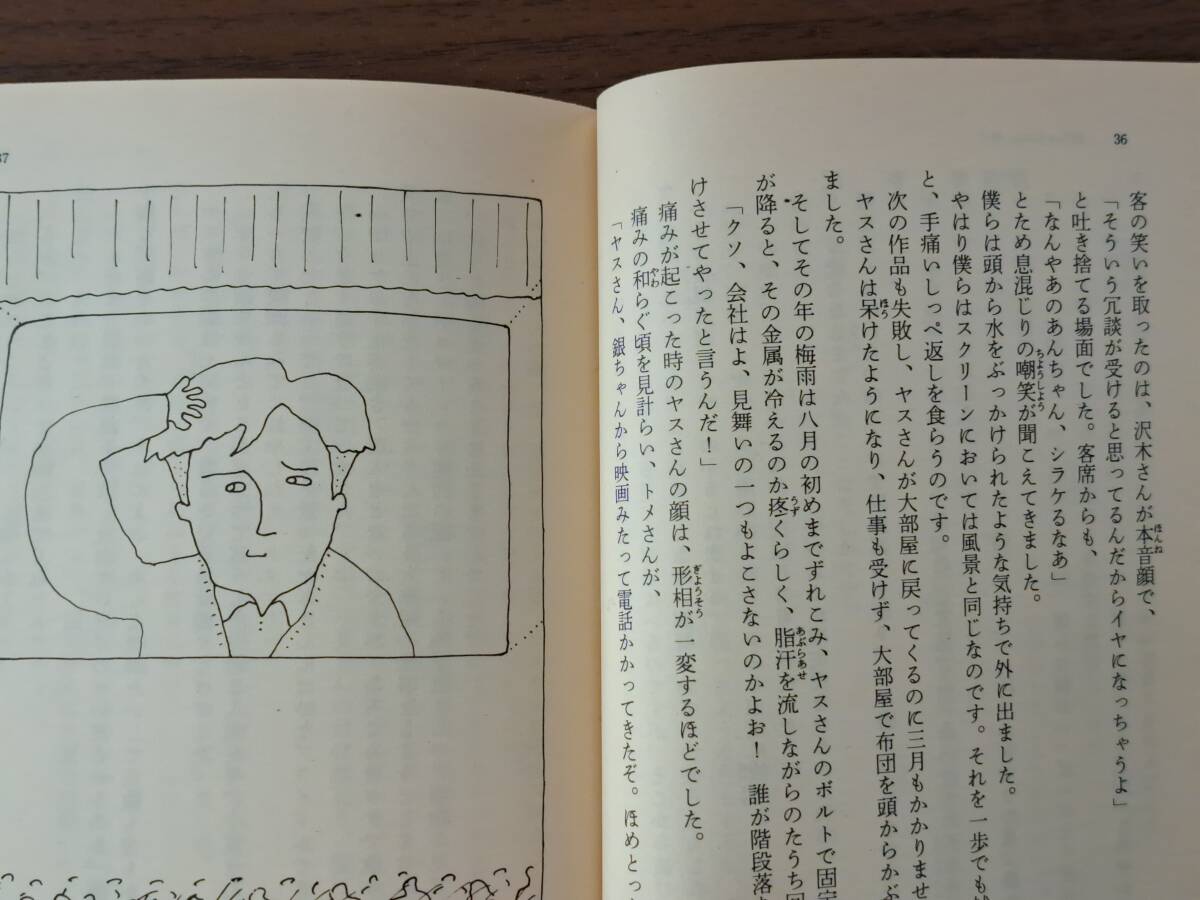 36
客の笑いを取ったのは、沢木さんが本音顔で、
「そういう冗談が受けると思ってるんだからイヤになっちゃうよ」
と吐き捨てる場面でした。客席からも、
「なんやあのあんちゃん、シラケるなあ」
とため息混じりの嘲笑が聞こえてきました。
僕らは頭から水をぶっかけられたような気持ちで外に出ました。
やはり僕らはスクリーンにおいては風景と同じなのです。それを一歩でも
と、手痛いしっぺ返しを食らうのです。
次の作品も失敗し、ヤスさんが大部屋に戻ってくるのに三月もかかりませ
ヤスさんは呆けたようになり、仕事も受けず、大部屋で布団を頭からかぶ
ました。
そしてその年の梅雨は八月の初めまでずれこみ、ヤスさんのボルトで固定
が降ると、その金属が冷えるのか疼くらしく、脂汗を流しながらのたうち回
「クソ、会社はよ、見舞いの一つもよこさないのかよお！　誰が階段落
けさせてやったと言うんだ！」
痛みが起こった時のヤスさんの顔は、形相が一変するほどでした。
痛みの和らぐ頃を見計らい、トメさんが、
「ヤスさん、銀ちゃんから映画みたって電話かかってきたぞ。ほめとっ
37